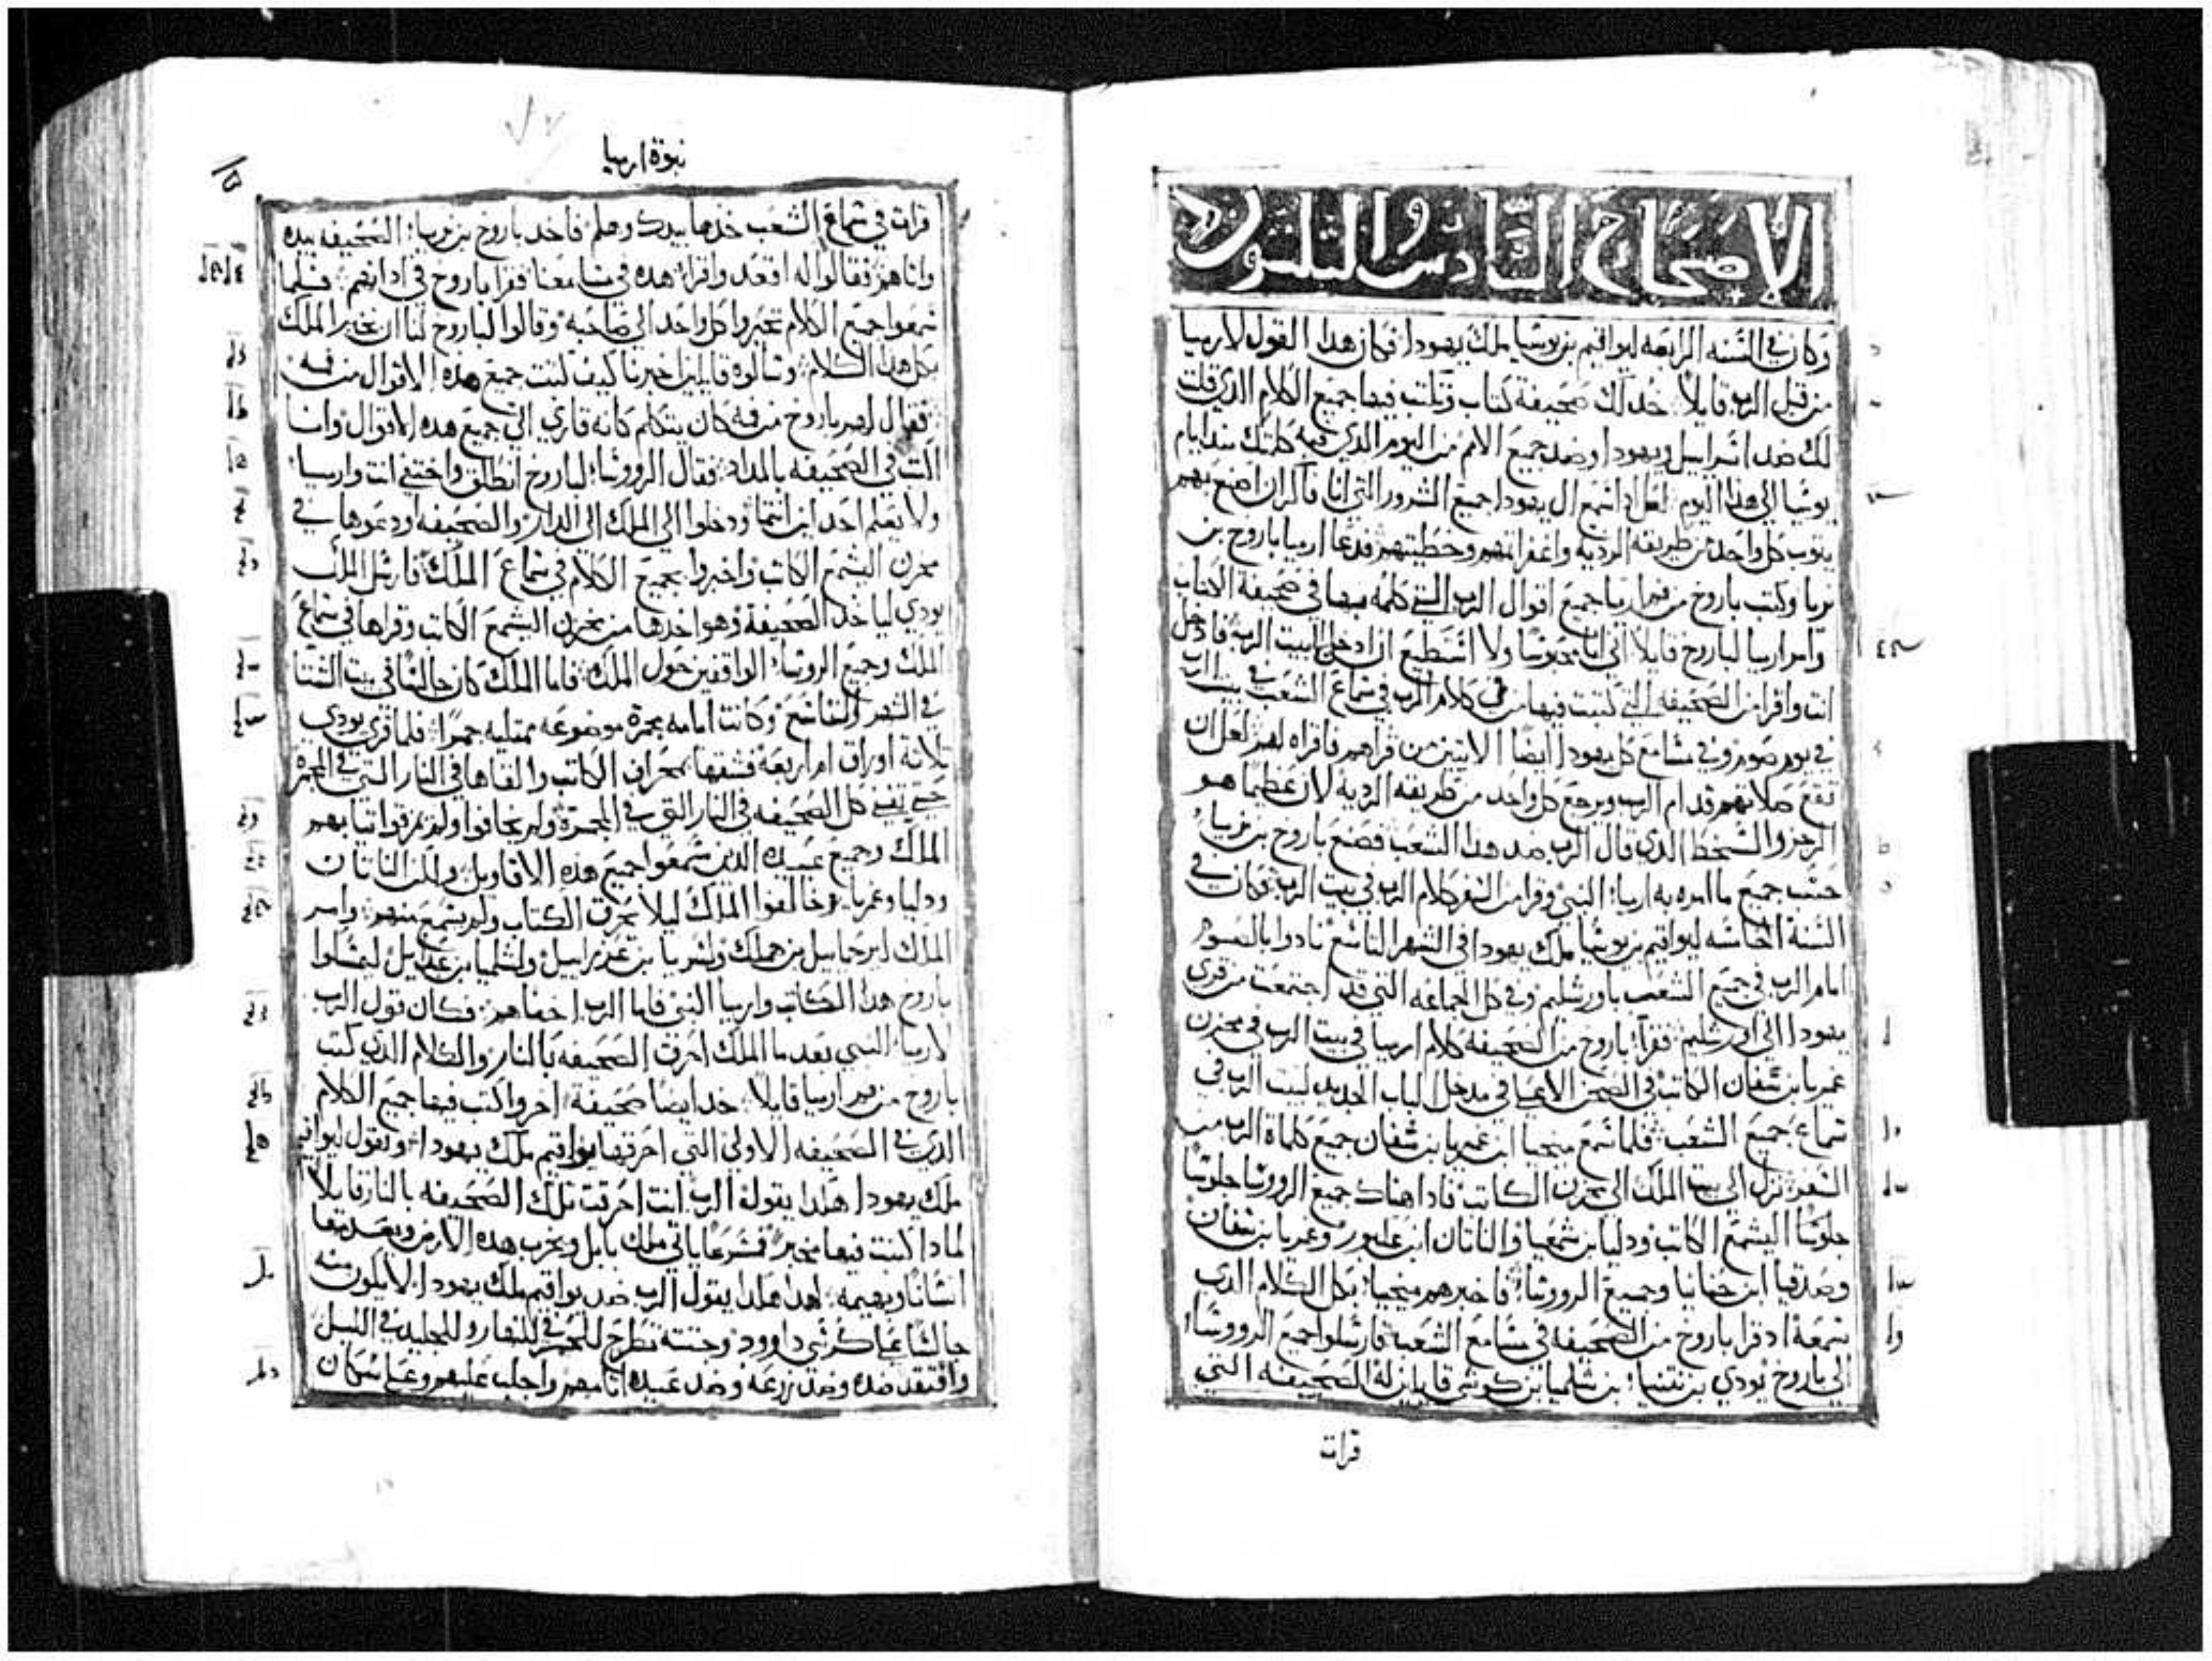 الاصحاح السادس والثلثون
وكان في السنه الرابعه ليواقيم بن يوشيا ملك يهودا فكان هدا القول لارميا
من قبل الرب قايلا خد لك صحيفة كتاب وتكتب فيها جميع الكلام الدي قلت
لك ضد اسراييل ويهودا وضد جميع الامم من اليوم الدي فيه كلمتك مند ايام
يوشيا الي هدا اليوم لعل ادا سمع ال يهودا جميع الشرور التي انا فاكر ان اصنع بهم
يتوب كل واحد من طريقه الرديه واغفر اتمهم وخطيتهم فدعا ارميا باروخ بن
نريا وكتب باروخ من فم ارميا جميع اقوال الرب التي كلمه بها في صحيفة الكتاب
وامر ارميا لباروخ قايلا اني انا محبوسا ولا استطيع ان ادخل لبيت الرب فادخل
انت واقرا من الصحيفه التي كتبت فيها من في كلام الرب في سماع الشعب في بيت الرب
في يوم صوم وفي مسامع كل يهودا ايضا الاتيين من قراهم فاقراه لهم لعل ان
تقع صلاتهم قدام الرب ويرجع كل واحد من طريقه الرديه لان عظيما هو
الرجز والسخط الدي قال الرب ضد هدا الشعب فصنع باروخ بن نريا
حسب جميع ما امره به ارميا النبي وقرا من السفر كلام الرب في بيت الرب فكان في
السنة الخامسه ليواقيم بن يوشيا ملك يهودا في الشهر التاسع نادوا بالصوم
امام الرب في جميع الشعب باورشليم وفي كل الجماعه التي قد اجتمعت من قري
يهودا الي اورشليم فقرا باروخ من الصحيفه كلام ارميا في بيت الرب في مخزن
غمريا بن شفان الكاتب في الصحن الاعليا في مدخل الباب الجديد لبيت الرب في
سماع جميع الشعب فلما سمع ميخيا ابن غمريا بن شفان جميع كلماة الرب من
السفر نزل الي بيت الملك الي مخزن الكاتب فادا هناك جميع الرووسا جلوسا
جلوسا اليشمع الكاتب ودليا بن شمعيا والناتان ابن عكبور وغمريا بن شفان
وصدقيا ابن حنانيا وجميع الرووسا فاخبرهم ميخيا بكل الكلام الدي
سمعه اد قرا باروخ من الصحيفه في مسامع الشعب فارسلوا جميع الرووسا
الي باروخ يودي بن نتنيا بن شلميا بن كوشي قايلين له الصحيفه التي
قرات
نبوة ارميا
قرات في سماع الشعب خدها بيدك وهلم فاخد باروخ بن نريا الصحيفه بيده
واتاهم فقالوا له اقعد واقرا هده في مسامعنا فقرا باروخ في ادانهم فلما
سمعوا جميع الكلام تحيروا كل واحد الي صاحبه وقالوا لباروخ لنا ان نخبر الملك
بكل هدا الكلام وسالوه قايلين اخبرنا كيف كتبت جميع هده الاقوال من فمه
فقال لهم باروخ من فمه كان يتكلم كانه قاري الي جميع هده الاقوال وانا
اكتب في الصحيفه بالمداد فقال الرووسا لباروخ انطلق واختفي انت وارميا
ولا يعلم احد اين انتما ودخلوا الي الملك الي الدار والصحيفه اودعوها في
مخزن اليشمع الكاتب واخبروا بجميع الكلام في سماع الملك فارسل الملك
يودي لياخد الصحيفة وهو اخدها من مخزن اليشمع الكاتب وقراها في سماع
الملك وجميع الروسا الواقفين حول الملك فاما الملك كان جالسا في بيت الشتا
في الشهر التاسع وكانت امامه مجمرة موضوعه ممتليه جمرا فلما قري يودي
تلاتة اوراق ام اربعة فشقها بمحراف الكاتب والقاها في النار التي في المجمرة
حتي تفني كل الصحيفه في النار التي في المجمرة ولم يخافوا ولم يمزقوا تيابهم
الملك وجميع عبيده الدين سمعوا جميع هده الاقاويل ولكن الناتان
ودليا وغمريا خالفوا الملك ليلا يحرق الكتاب ولم يسمع منهم وامر
الملك ليرحماييل بن هملك ولسريا بن عزراييل ولشلميا بن عبدييل ليمسكوا
باروخ هدا الكاتب وارميا النبي فاما الرب اخفاهم فكان قول الرب
لارميا النبي بعد ما الملك احرق الصحيفه بالنار والكلام الدي كتب
باروخ من فم ارميا قايلا خد ايضا صحيفة اخر واكتب فيها جميع الكلام
الدي في الصحيفه الاولي التي احرقها يواقيم ملك يهودا وتقول ليواقيم
ملك يهودا هكدا يقول الرب انت احرقت تلك الصحيفه بالنار قايلا
لمادا كتبت فيها مخبرا فسرعا ياتي ملك بابل ويخرب هده الارض ويعدمها
انسانا وبهيمه لهدا هكدا يقول الرب ضد يواقيم ملك يهودا لا يكون منه
جالسا علي كرسي داوود وجتته تطرح للحر في النهار وللجليد في الليل
وافتقد ضده وضد زرعه وضد عبيده اتامهم واجلب عليهم وعلي سكان